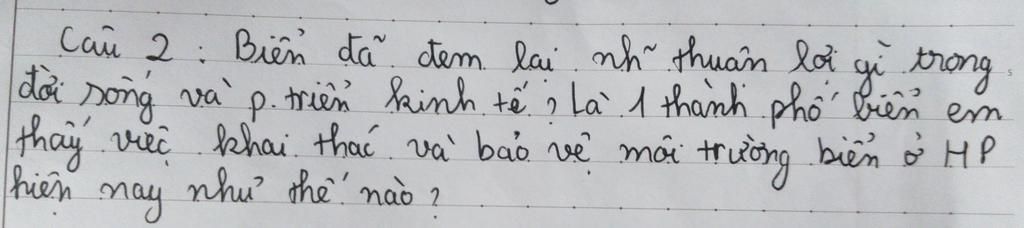 Câu 2 : Biển đã đem lại nh~ thuận lợi gì trong
đời sống và p. triển kinh tế ? Là 1 thành phố biển em
thấy việc khai thác và bảo vệ môi trường biển ở HP
hiện nay như thế nào ?